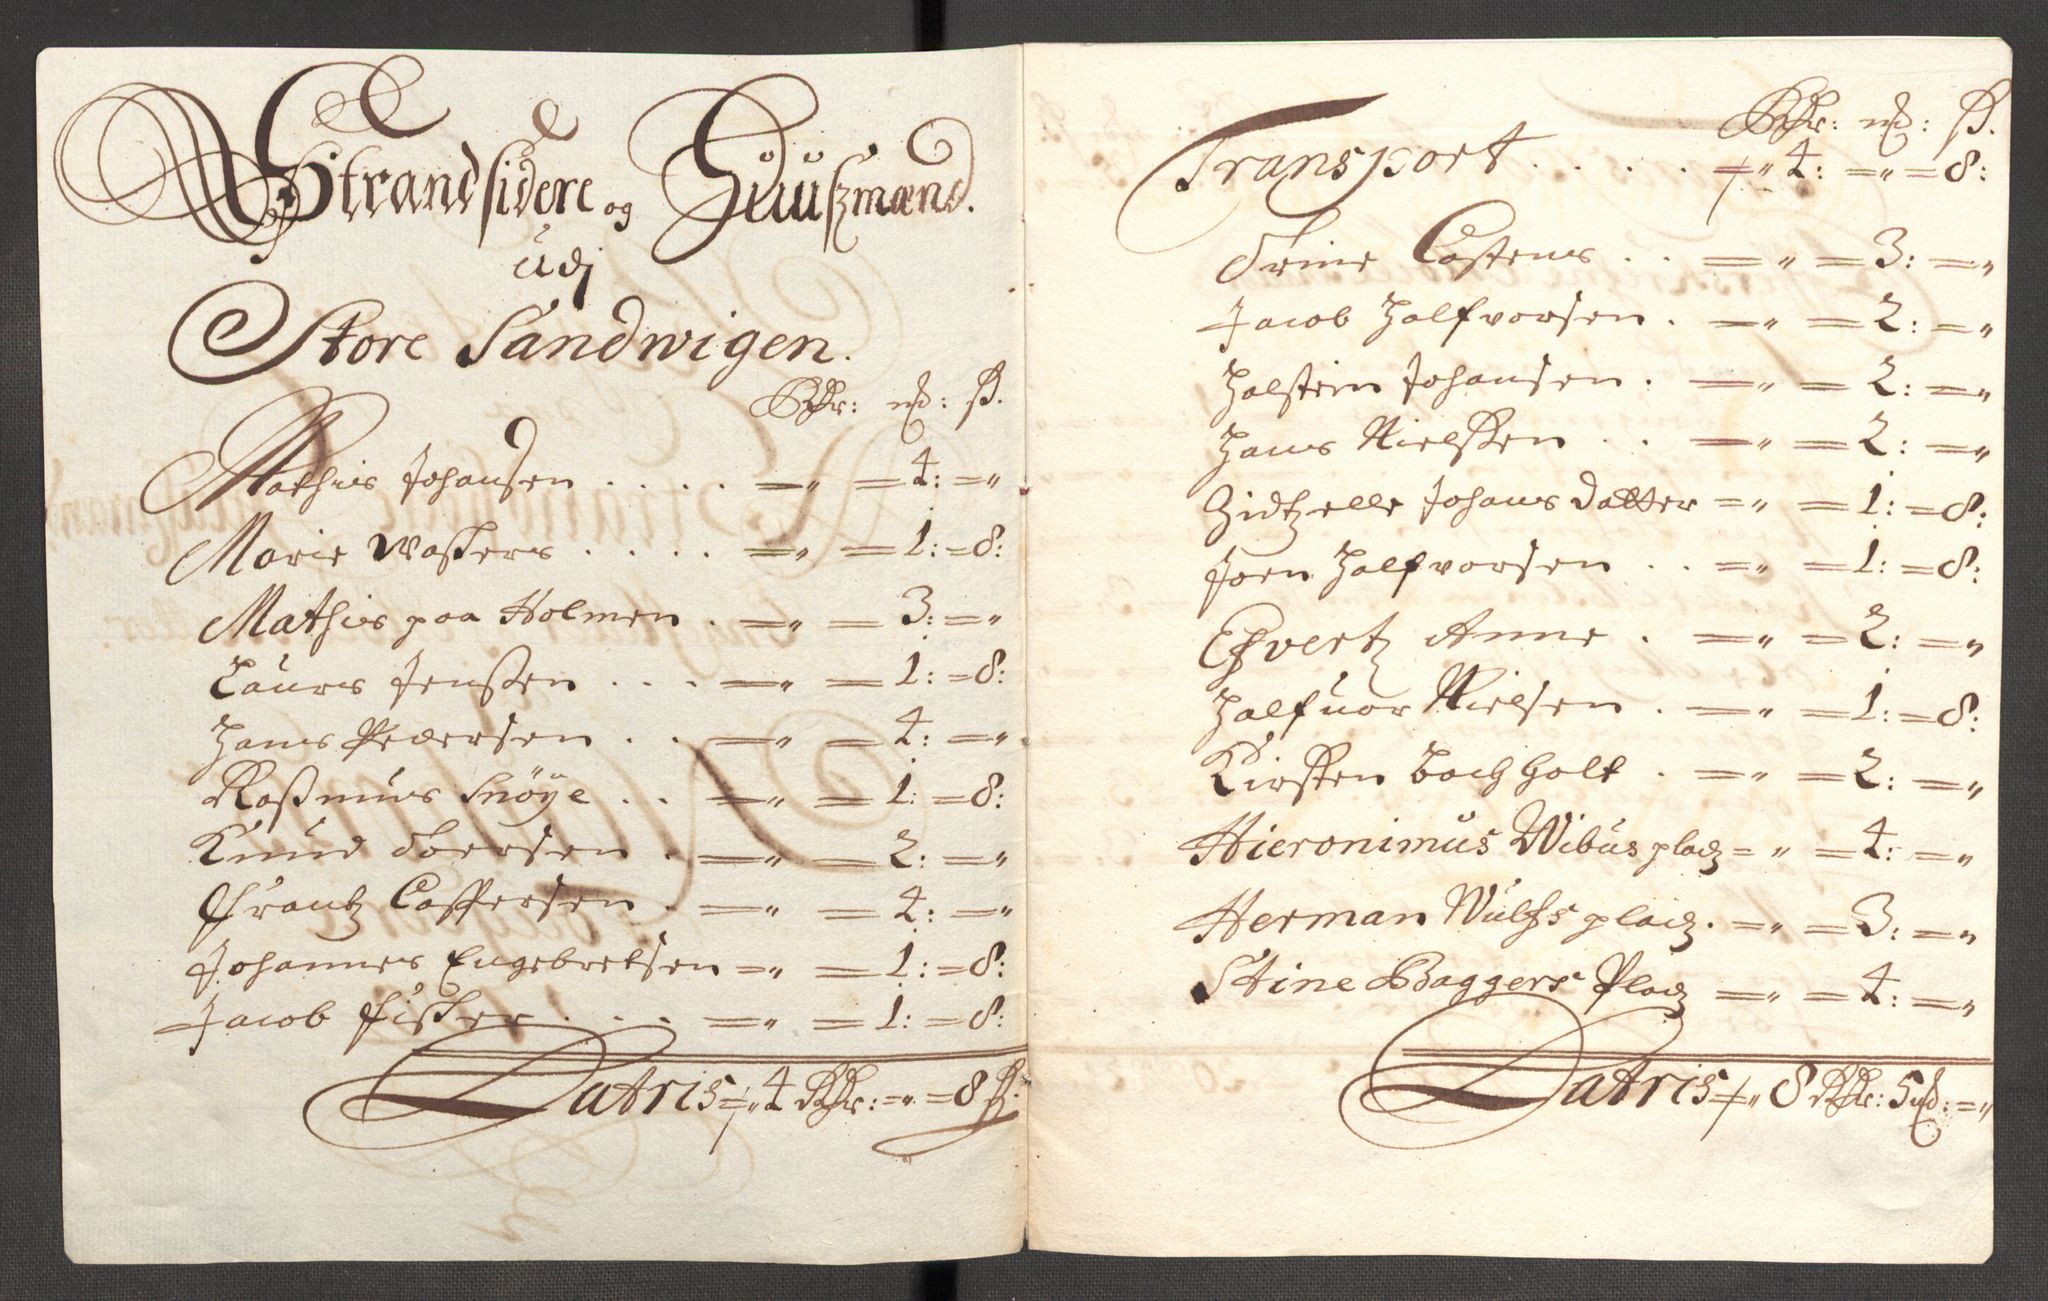 Strandsidere og Huusmænd.
Udj
Store Sandwigen.
Rdr: mk: ß.
Mathis Johansen . . . . =„ =4: =„
Marie Waskers . . . . =„ =1: =8:
Mathis paa Holmen . =„ =3: =„
Laurs Jenssen . . . =„ =1: =8:
Hans Pedersen . . =„ =4: =„
Rasmus Snöye . . =„ =1: =8:
Knud Toersen . =„ =2: =„
Frantz Caspersen . =„ =4: =„
Johannes Engebretsen =„ =1: =8:
Jacob Fisker . . . =„ =1: =8:
Latris =„ 4 Rdr: =„ =8 ß.
Rdr: mk: ß.
Transport . . . . =„ 4: =„ =8:
Trine Castens . . =„ =3: =„
Jacob Halfvorsen . =„ =2: =„
Holstein Johansen . =„ =2: =„
Hans Nielssen . . =„ =2: =„
Zidtzelle Johans datter =„ =1: =8:
Joen Halfvorsen . . =„ =1: =8:
Efvertz Anne . =„ =2: =„
Halfuor Nielsen . =„ =1: =8:
Kirsten Bochholt . =„ =2: =„
Hieronimus Wibus pladz =„ =4: =„
Herman Wulfs pladz. =„ =3: =„
Stine Baggers Pladz =„ =4: =„
Latris =„ 8 Rdr: 5 mk: =„